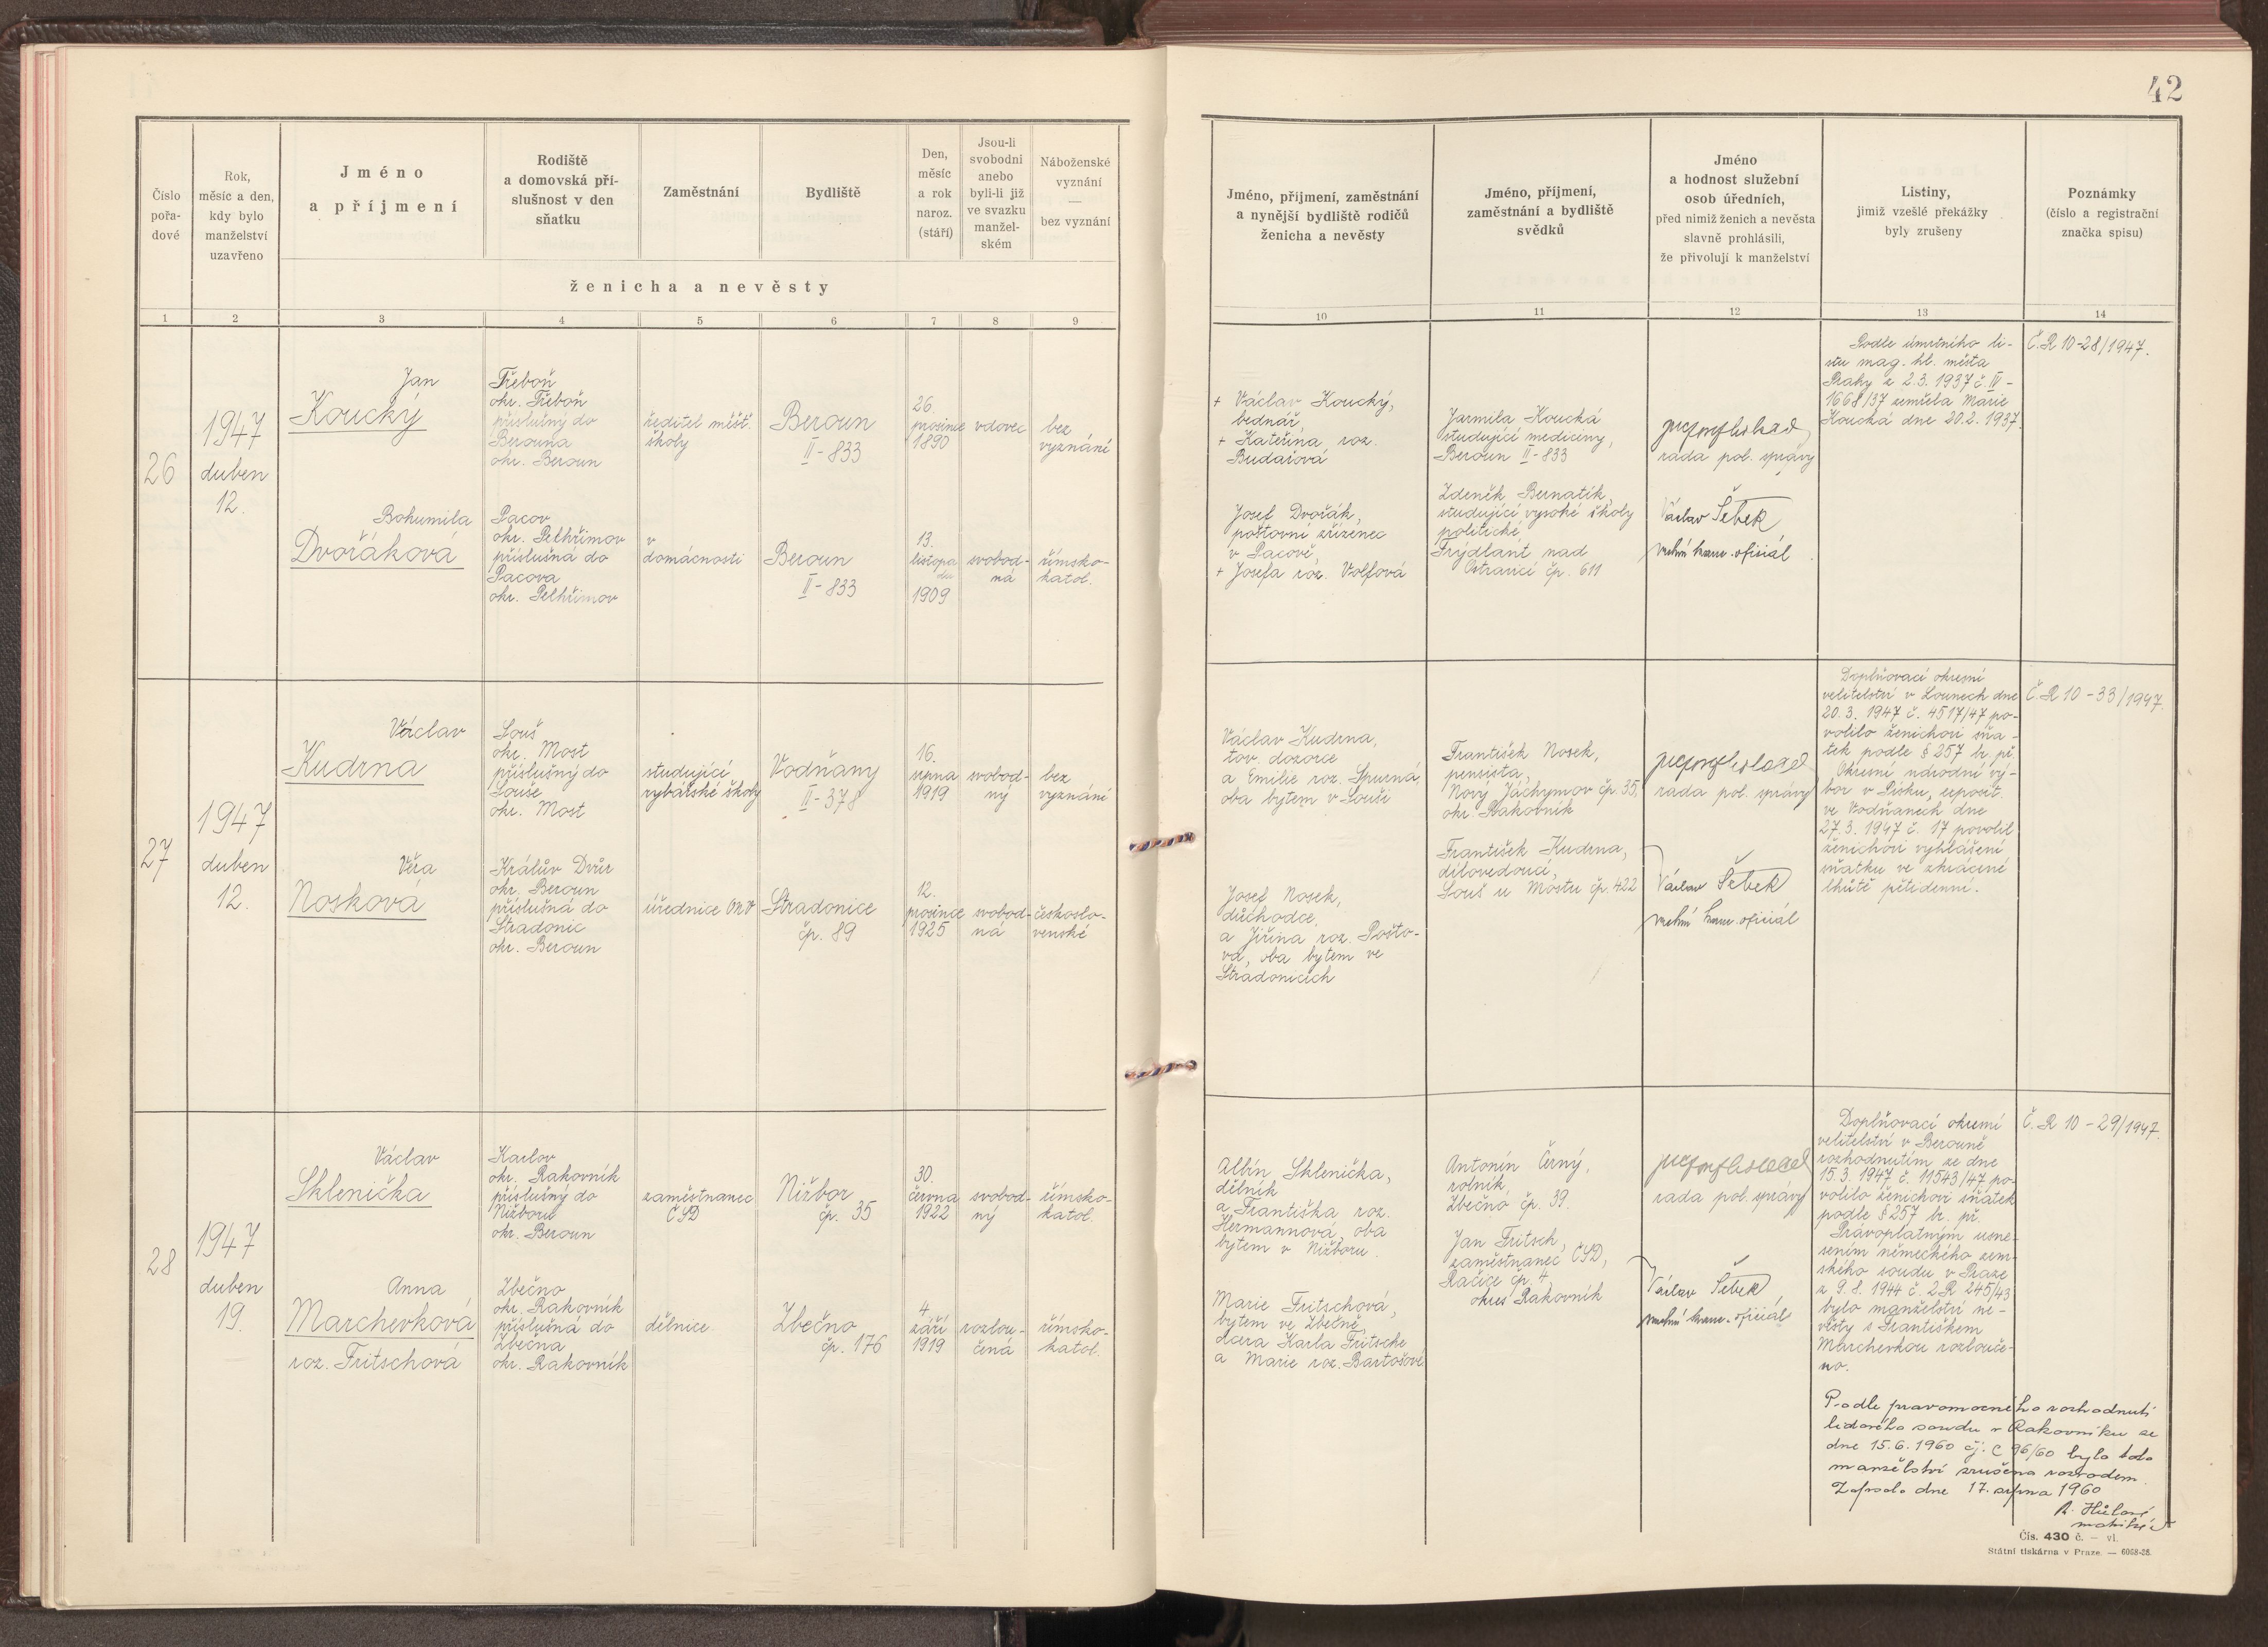 42
Číslo
pořa-
dové
Rok,
měsíc a den,
kdy bylo
manželství
uzavřeno
Jméno
a příjmení
Rodiště
a domovská pří-
slušnost v den
sňatku
Zaměstnání
Bydliště
Den,
měsíc
a rok
naroz.
(stáří)
Jsou-li
svobodni
anebo
byli-li již
ve svazku
manžel-
ském
Náboženské
vyznání
—
bez vyznání
ženicha a nevěsty
Jméno, příjmení, zaměstnání
a nynější bydliště rodičů
ženicha a nevěsty
Jméno, příjmení,
zaměstnání a bydliště
svědků
Jméno
a hodnost služební
osob úředních,
před nimiž ženich a nevěsta
slavně prohlásili,
že přivolují k manželství
Listiny,
jimiž vzešlé překážky
byly zrušeny
Poznámky
(číslo a registrační
značka spisu)
1 2 3 4 5 6 7 8 9 10 11 12 13 14
26
1947
duben
12.
Jan
Koucký
Třeboň
okr. Třeboň
příslušný do
Berouna
okr. Beroun
ředitel měšť.
školy
Beroun
II-833
26.
prosince
1890
vdovec
bez
vyznání
Bohumila
Dvořáková
Pacov
okr. Pelhřimov
příslušná do
Pacova
okr. Pelhřimov
v
domácnosti
Beroun
II-833
13.
listopa
du
1909
svobod-
ná
římsko-
katol.
+ Václav Koucký,
bednář,
+ Kateřina roz.
Budařová
Josef Dvořák,
poštovní zřízenec
v Pacově,
+ Josefa roz. Volfová
Jarmila Koucká
studující mediciny,
Beroun II-833
Zdeněk Bernatík,
studující vysoké školy
politické,
Frýdlant nad
Ostravicí čp. 611
rada pol. správy
Václav Šebek
vrchní kanc. oficiál
Podle úmrtního li-
stu mag. hl. města
Prahy z 2.3. 1937 č. IV-
1668/37 zemřela Marie
Koucká dne 20.2. 1937.
Č.R 10-28/1947.
27
1947
duben
12.
Václav
Kudrna
Souš
okr. Most
příslušný do
Souše
okr. Most
studující
rybářské školy
Vodňany
II-378
16.
srpna
1919
svobod-
ný
bez
vyznání
Věra
Nosková
Králův Dvůr
okr. Beroun
příslušná do
Stradonic
okr. Beroun
úřednice ONV
Stradonice
čp. 89
12.
prosince
1925
svobod-
ná
českoslo-
venské
Václav Kudrna,
tov. dozorce
a Emilie roz. Spurná,
oba bytem v Souši
Josef Nosek,
důchodce,
a Jiřina roz. Pošto-
vá, oba bytem ve
Stradonicích
František Nosek,
pensista,
Nový Jáchymov čp. 35,
okr. Rakovník
František Kudrna,
dílovedoucí,
Souš u Mostu čp. 422
rada pol. správy
Václav Šebek
vrchní kanc. oficiál
Doplňovací okresní
velitelství v Lounech dne
20.3. 1947 č. 4517/47 po-
volilo ženichovi sňa-
tek podle § 257 br. př.
Okresní národní vý-
bor v Písku, exposit.
ve Vodňanech dne
27.3. 1947 č. 17 povolil
ženichovi vyhlášení
sňatku ve zkrácené
lhůtě pětidenní.
Č.R 10-33/1947.
28
1947
duben
19.
Václav
Sklenička
Karlov
okr. Rakovník
příslušný do
Nižboru
okr. Beroun
zaměstnanec
ČSD
Nižbor
čp. 35
30.
června
1922
svobod-
ný
římsko-
katol.
Anna
Marchevková
roz. Fritschová
Zbečno
okr. Rakovník
příslušná do
Zbečna
okr. Rakovník
dělnice
Zbečno
čp. 176
4.
září
1919
rozlou-
čená
římsko-
katol.
Albín Sklenička,
dělník
a Františka roz.
Hermannová, oba
bytem v Nižboru.
Marie Fritschová,
bytem ve Zbečně,
dcera Karla Fritsche
a Marie roz. Bartošové
Antonín Černý,
rolník,
Zbečno čp. 39.
Jan Fritsch,
zaměstnanec ČSD,
Račice čp. 4,
okres Rakovník
rada pol. správy
Václav Šebek
vrchní kanc. oficiál
Doplňovací okresní
velitelství v Berouně
rozhodnutím ze dne
15.3. 1947 č. 11543/47 po-
volilo ženichovi sňatek
podle § 257 br. př.
Právoplatným usne-
sením německého zem-
ského soudu v Praze
z 9.8. 1944 č. 2 R 245/43
bylo manželství ne-
věsty s Františkem
Marchevkou rozlouče-
no.
Č.R 10-29/1947.
Podle pravomocného rozhodnutí
lidového soudu v Rakovníku ze
dne 15.6.1960 čj. C 96/60 bylo toto
manželství zrušeno rozvodem.
Zapsáno dne 17. srpna 1960
Čís. 430 č. — vl.
Státní tiskárna v Praze. — 6068-38.